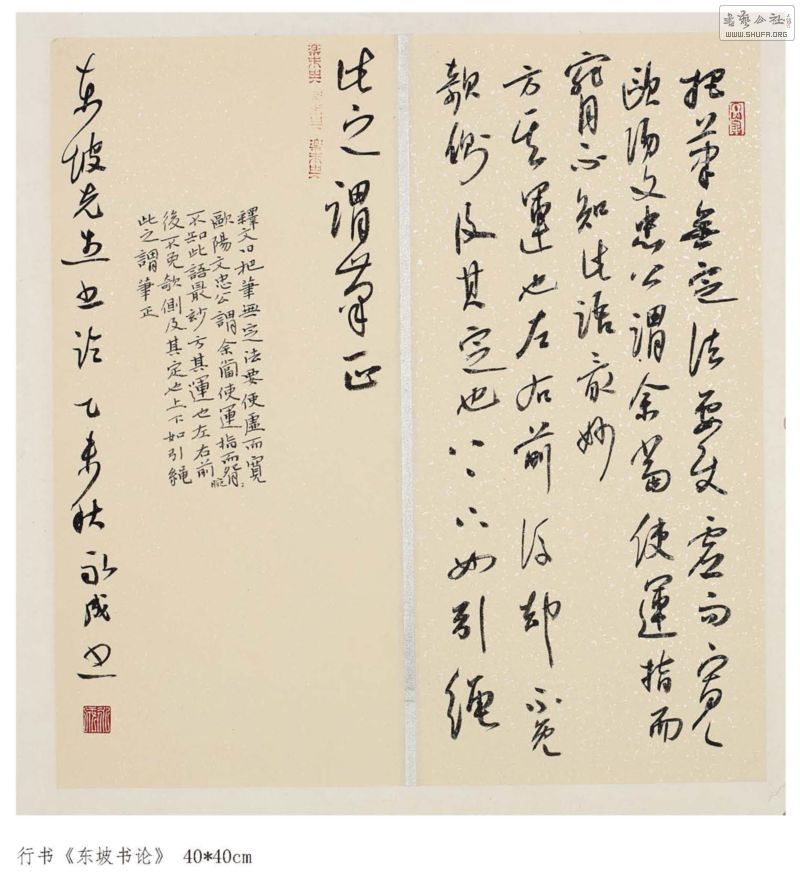 书艺公社
WWW.SHUFA.ORG
把筆無定法要使虛而寬
歐陽文忠公謂余當使運指而
腕不知此語最妙
方其運也左右前後却不免
欹側及其定也上下如引繩
此之謂筆正
釋文曰把筆無定法要使虛而寬
歐陽文忠公謂余當使運指而腕
不知此語最妙方其運也左右前
後不免欹側及其定也上下如引繩
此之謂筆正
东坡先生书论乙未秋永成书
行书《东坡书论》 40*40cm